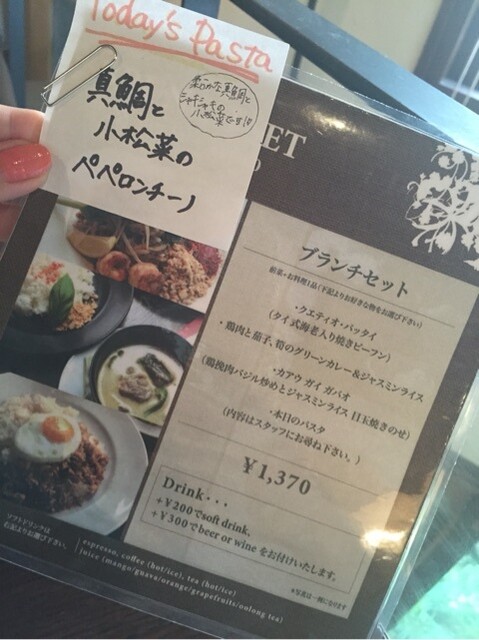 Today's Pasta
真鯛と
小松菜の
ペペロンチーノ
柔らかな真鯛と
シャキシャキの
小松菜です!!
ET
ブランチセット
前菜+お料理1品(下記よりお好きな物をお選び下さい)
・クエティオ・パッタイ
(タイ式海老入り焼きビーフン)
・鶏肉と茄子、筍のグリーンカレー&ジャスミンライス
・カアウ ガイ ガパオ
(鶏挽肉バジル炒めとジャスミンライス 目玉焼きのせ)
・本日のパスタ
(内容はスタッフにお尋ね下さい。)
¥1,370
Drink・・・
+¥200でsoft drink,
+¥300でbeer or wine をお付けいたします。
*写真は一例になります
ソフトドリンクは
右記よりお選び下さい。
espresso, coffee (hot/ice), tea (hot/ice)
juice (mango/guava/orange/grapefruits/oolong tea)